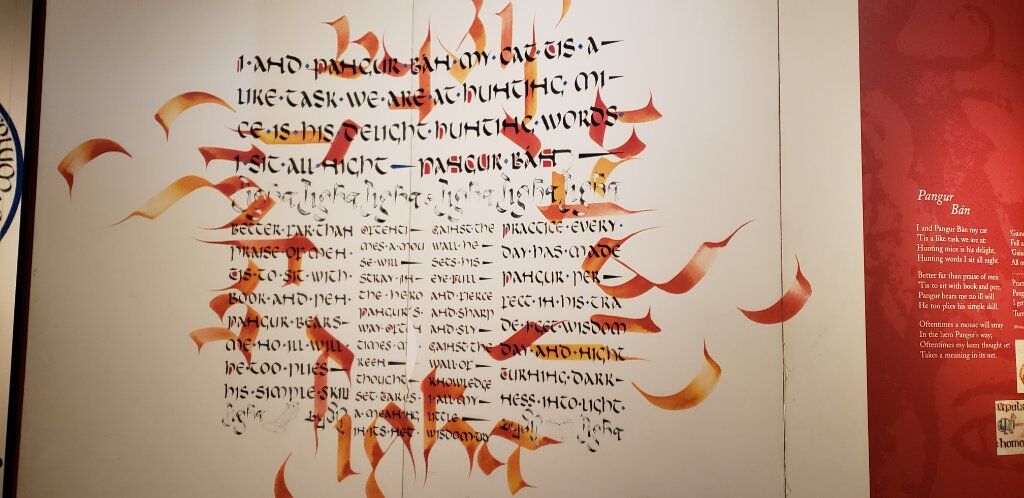 I·AND·PANGUR·BÁN·MY·CAT·TIS·A–
LIKE·TASK·WE·ARE·AT·HUNTING·MI–
CE·IS·HIS·DELIGHT·HUNTING·WORDS·
I·SIT·ALL·NIGHT–PANGUR·BÁN–
BETTER·FAR·THAN
PRAISE·OF·MEN·
TIS·TO·SIT·WITH·
BOOK·AND·PEN·
PANGUR·BEARS–
ME·NO·ILL·WILL·
HE·TOO·PLIES–
HIS·SIMPLE·SKILL
OFTENTI–
MES·A·MOU
SE·WILL–
STRAY·IN–
THE·HERO
PANGUR'S
WAY·OFTEN
TIMES·
KEEN–
THOUGHT–
SET·TAKES·
A·MEANING
IN·ITS·NET·
GAINST·THE
WALL·HE–
SETS·HIS–
EYE·FULL–
AND·FIERCE
AND·SHARP
AND·SLY–
GAINST·THE
WALL·OF–
KNOWLEDGE
I·ALL·MY–
LITTLE–
WISDOM·
PRACTICE·EVERY·
DAY·HAS·MADE
PANGUR·PER–
FECT·IN·HIS·TRA
DE·I·GET·WISDOM
DAY·AND·NIGHT
TURNING·DARK–
NESS·INTO·LIGHT·
Pangur
Bán
I and Pangur Bán my cat
'Tis a like task we are at:
Hunting mice is his delight,
Hunting words I sit all night.
Better far than praise of men
'Tis to sit with book and pen,
Pangur bears me no ill will
He too plies his simple skill.
Oftentimes a mouse will stray
In the hero Pangur's way;
Oftentimes my keen thought set
Takes a meaning in its net.